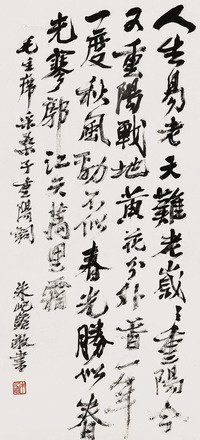 人生易老天難老歲〻重陽今
又重陽戰地黄花分外香一年
一度秋風勁不似春光勝似春
光寥廓江天萬里霜
毛主席采桑子重陽詞
朱屺瞻敬書